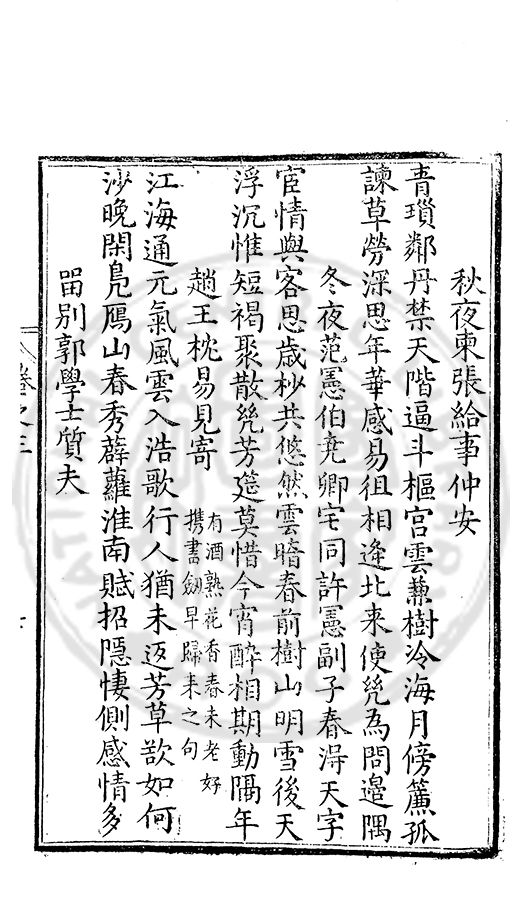 秋夜柬張給事仲安
青瑣鄰丹禁天階逼斗樞宮雲蒹樹冷海月傍簾孤
諫草勞深思年華感易徂相逢北来使幾為問邊隅
冬夜范憲伯堯卿宅同許憲副子春得天字
宦情與客思歳杪共悠然雲暗春前樹山明雪後天
浮沉惟短褐聚散幾芳筵莫惜今宵醉相期動隔年
趙王枕易見寄
有酒熟花香春未老好
携書劒早歸来之句
江海通元氣風雲入浩歌行人猶未返芳草欲如何
沙晚閑鳬鴈山春秀薜蘿淮南賦招隠悽側感情多
畱别郭學士質夫